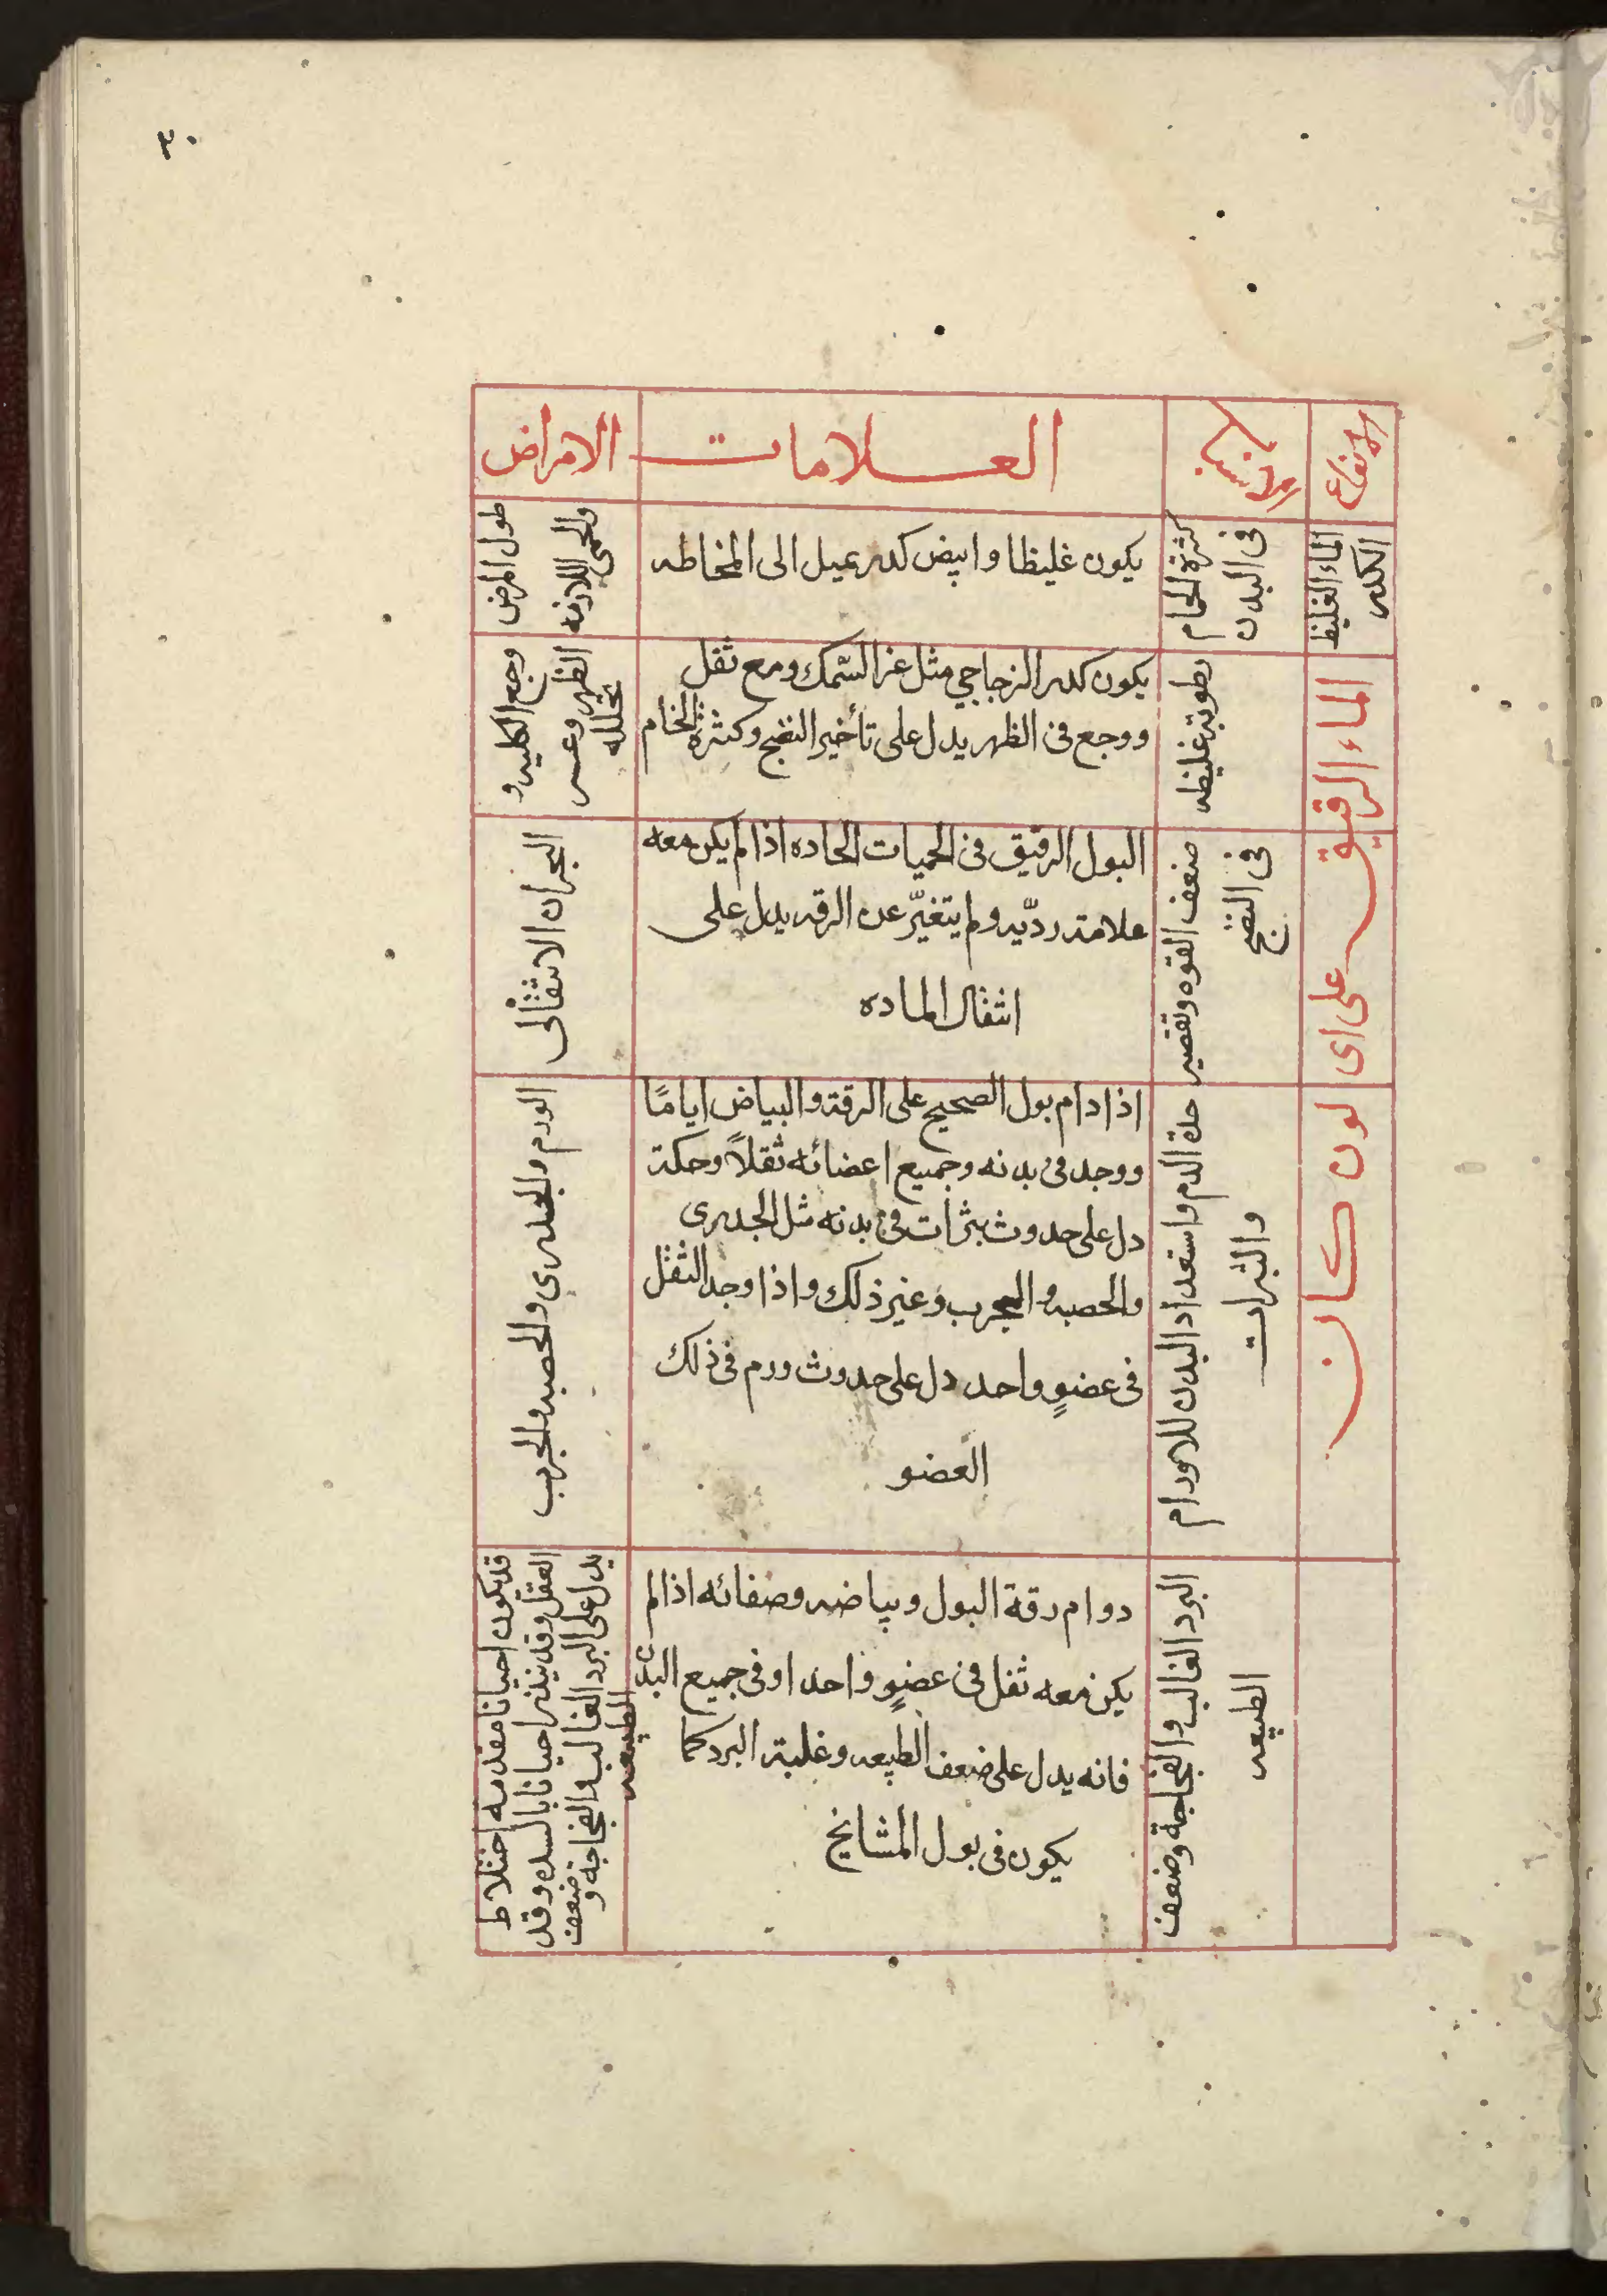 ٣٠
الانواع
الاسباب
العلامات
الامراض
الماء الغليظ
الكدر
كثرة الخام
فى البدن
يكون غليظا وابيض كدر يميل الى المخاطه
طول المرض
والحمى اللازمه
الماء الرقيق على اى لون كان
رطوبة غليظه
يكون كدر الزجاجي مثل غر السّمك ومع ثقل
ووجع فى الظهر يدل على تأخير النضج وكثرة الخام
وجع الكليه و
الظهر وعسر
تحلله
ضعف القوه وتقصير
فى النضج
البول الرقيق فى الحميات الحاده اذا لم يكن معه
علامة رديّه ولم يتغيّر عن الرقه يدل على
انتقال الماده
البحران الانتقالى
حدة الدم واستعداد البدن للاورام
والبثرات
اذا دام بول الصحيح على الرقة والبياض ايامًا
ووجد فى بدنه وجميع اعضائه ثقلاً وحكة
دل على حدوث بثرات فى بدنه مثل الجدرى
والحصبه والجرب وغير ذلك واذا وجد الثقل
فى عضوٍ واحد دل على حدوث ورم فى ذلك
العضو
الورم والجدرى والحصبه والجرب
البرد الغالب والفجاجة وضعف
الطبيعه
دوام رقة البول وبياضه وصفائه اذا لم
يكن معه ثقل فى عضوٍ واحد او فى جميع البدن
فانه يدل على ضعف الطبيعه وغلبة البرد كما
يكون فى بول المشايخ
قد يكون احيانا مقدمه اختلاط
العقل وقد ينذر احيانا بالسده وقد
يدل على البرد الغالب والفجاجه و
ضعف
الطبيعه